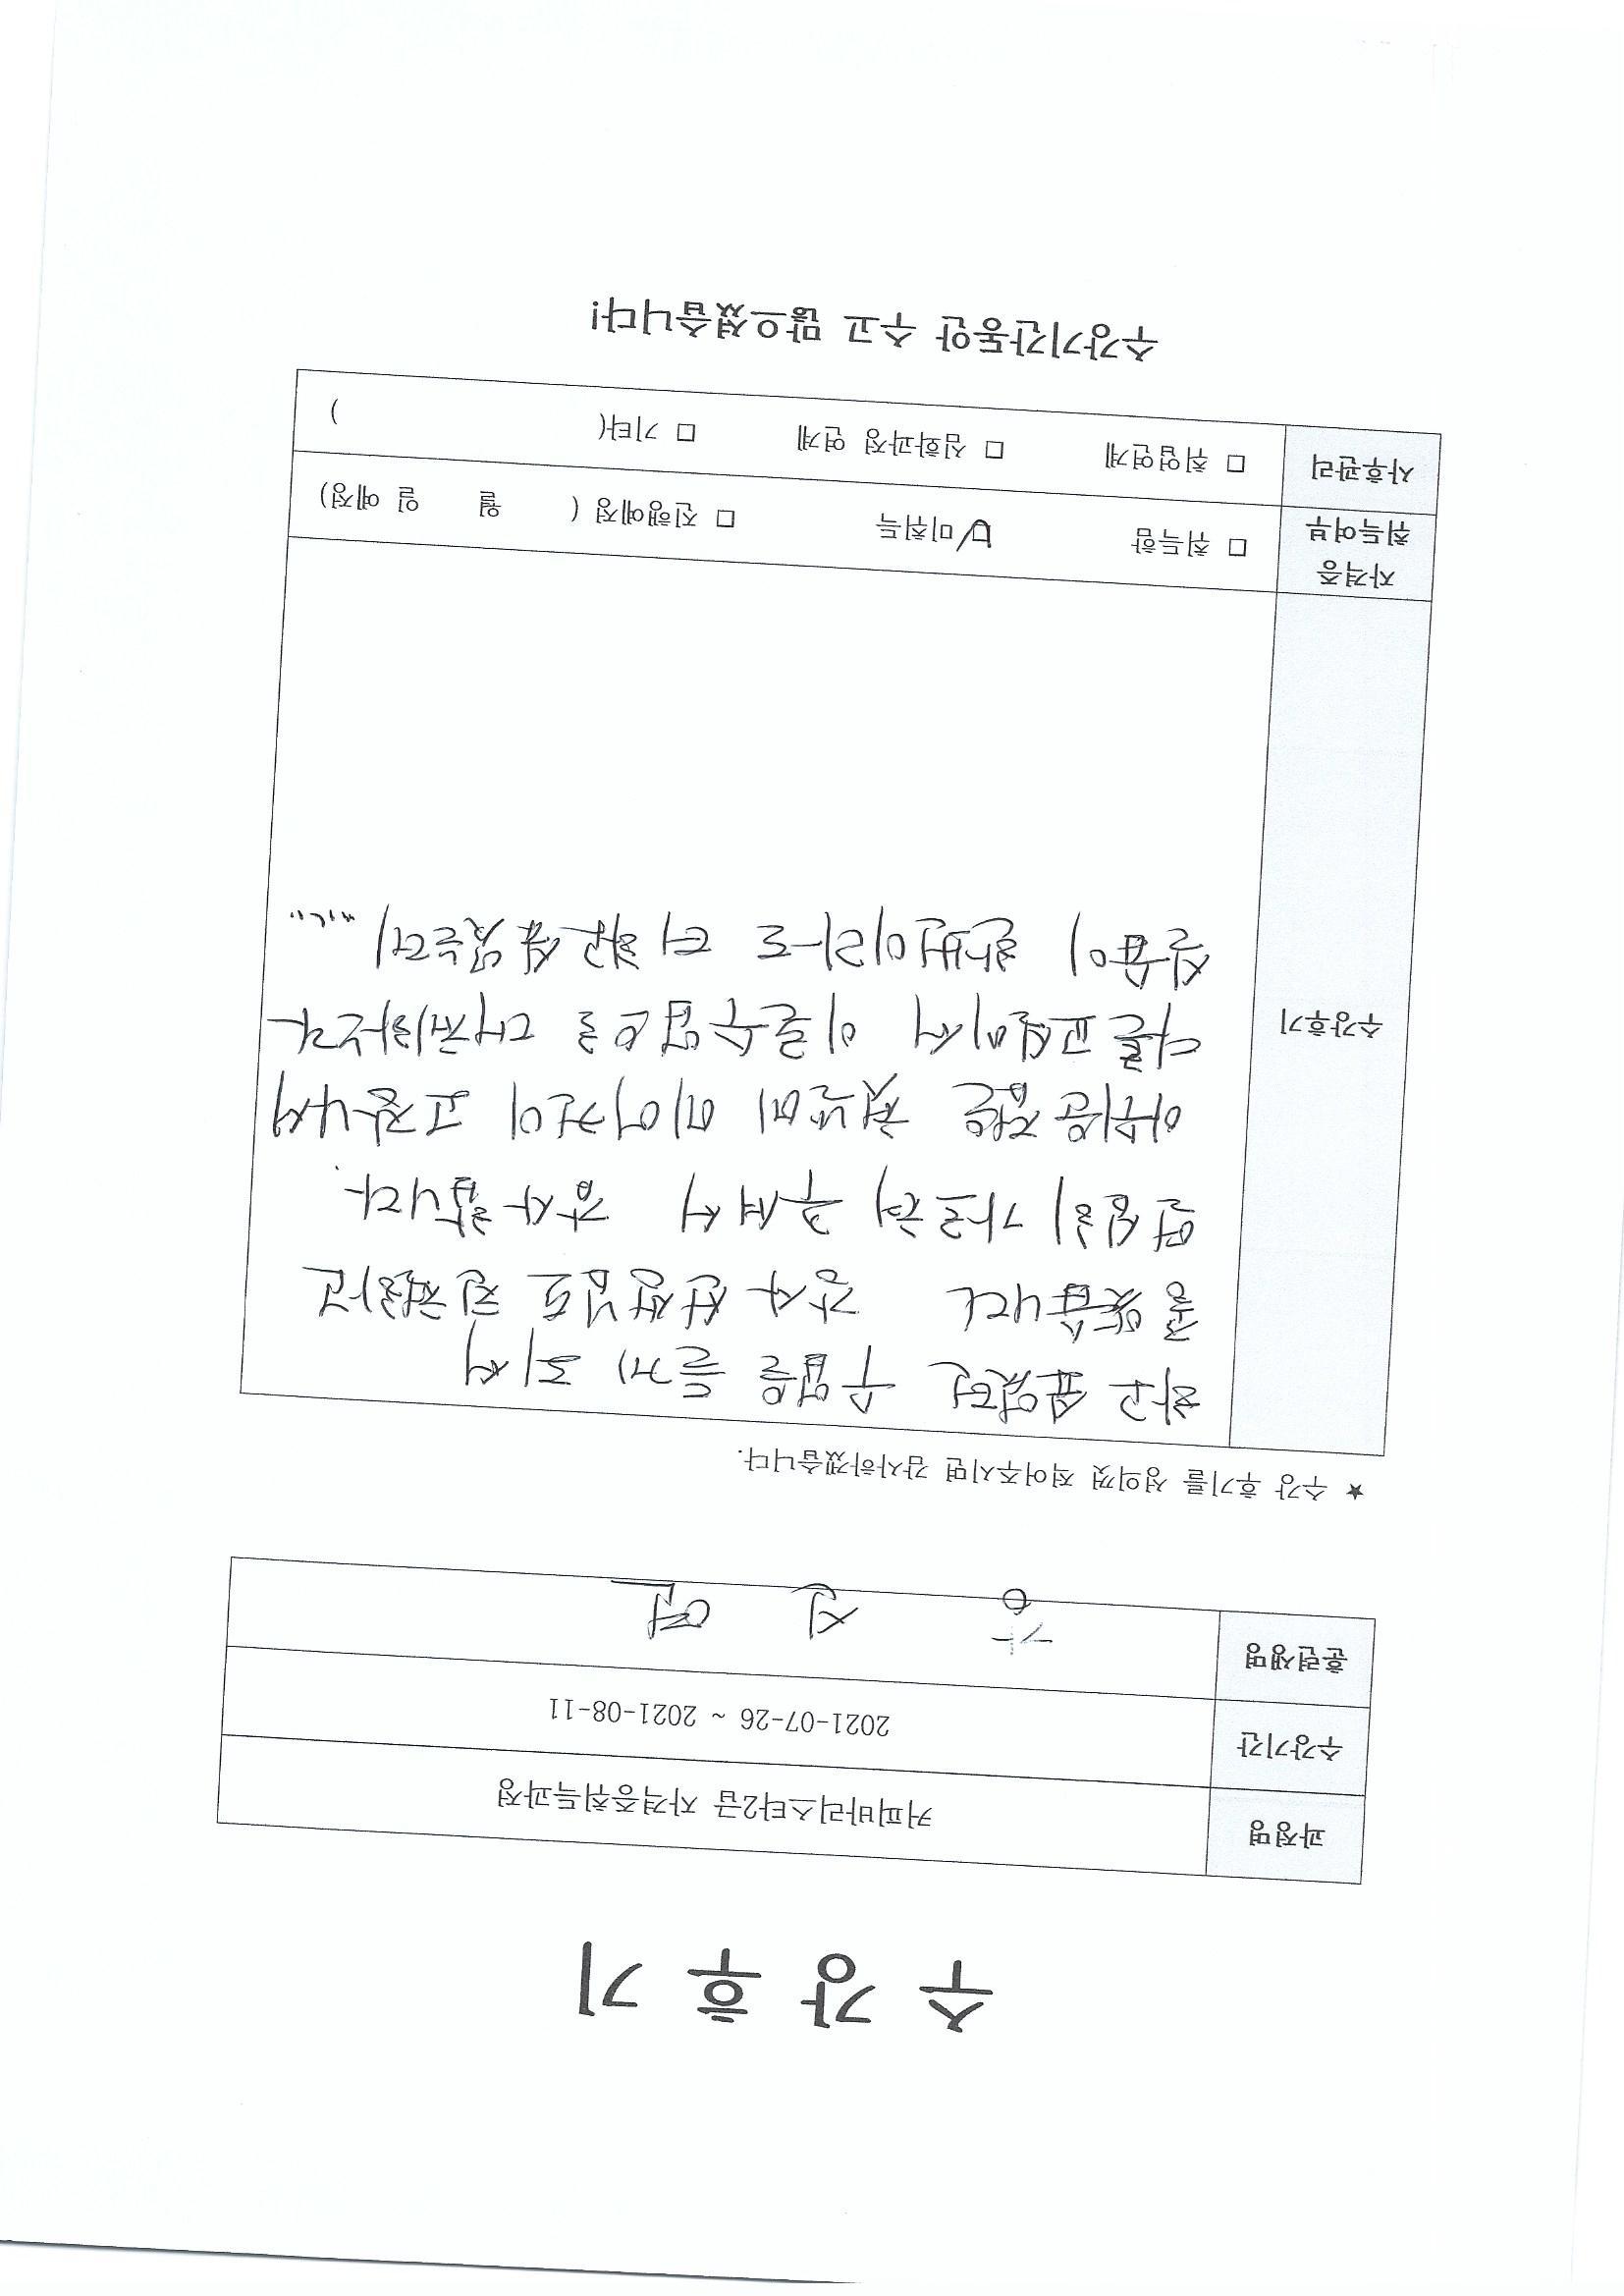 수 강 후 기
과정명 커피바리스타2급 자격증취득과정
수강기간 2021-07-26 ~ 2021-08-11
훈련생명 강 신 연
★ 수강 후기를 성의껏 적어주시면 감사하겠습니다.
수강후기
하고 싶었던 수업을 듣게 되서
좋았습니다 강사 선생님도 친절하고
열심히 가르쳐 주셔서 감사합니다
아쉬운 점은 첫날에 기계가 고장나서
다른 교실에서 이론수업으로 대체하다
실습이 한번이라도 더 했음
자격증 취득여부 □ 취득함 ☑ 미취득 □ 진행예정 ( 월 일 예정)
사후관리 □ 취업연계 □ 심화과정 연계 □ 기타( )
수강기간동안 수고 많으셨습니다!